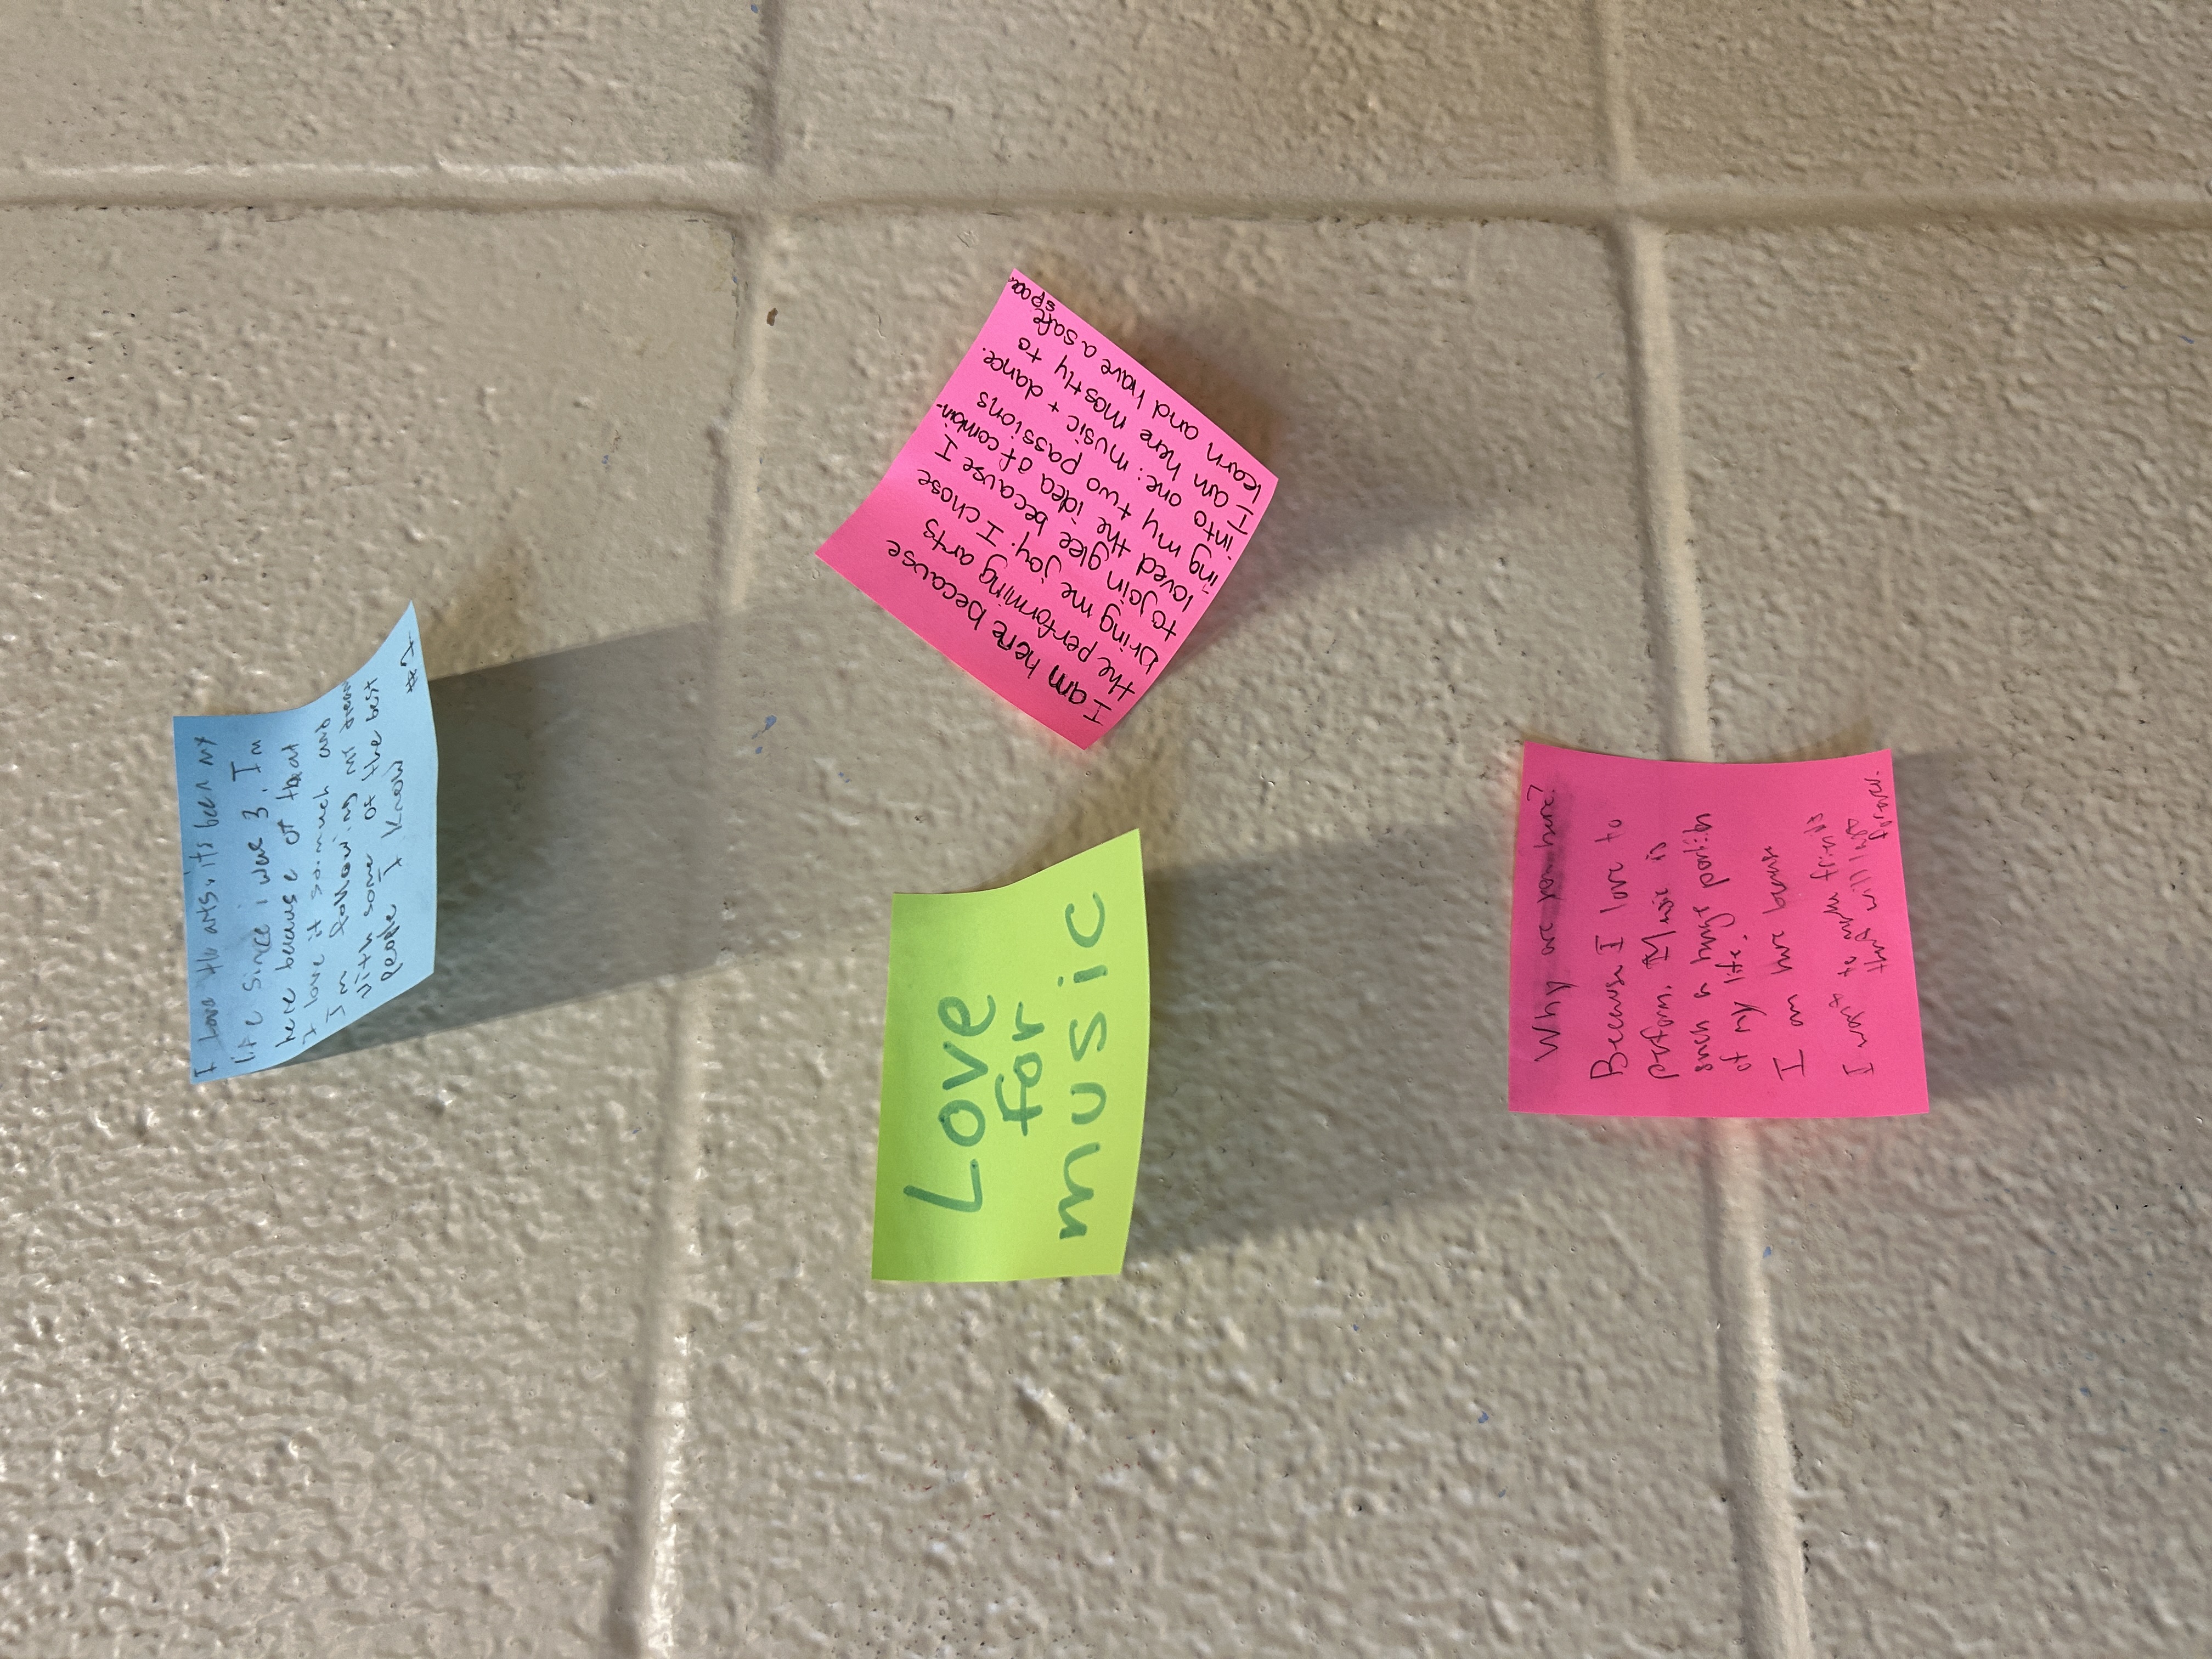 I love the arts. its been my
life since i was 3. I'm
here because of that
I love it so much and
I'm following my dream
with some of the best
people I know
I am here because
the performing arts
bring me joy. I chose
to join glee because I
loved the idea of combin-
ing my two passions
into one: music + dance.
I am here mostly to
learn and have a safe
space
Love
for
music
Why are you here?
Because I love to
perform. Music is
such a huge portion
of my life.
I am here because
I want to make friends
that will last
forever.